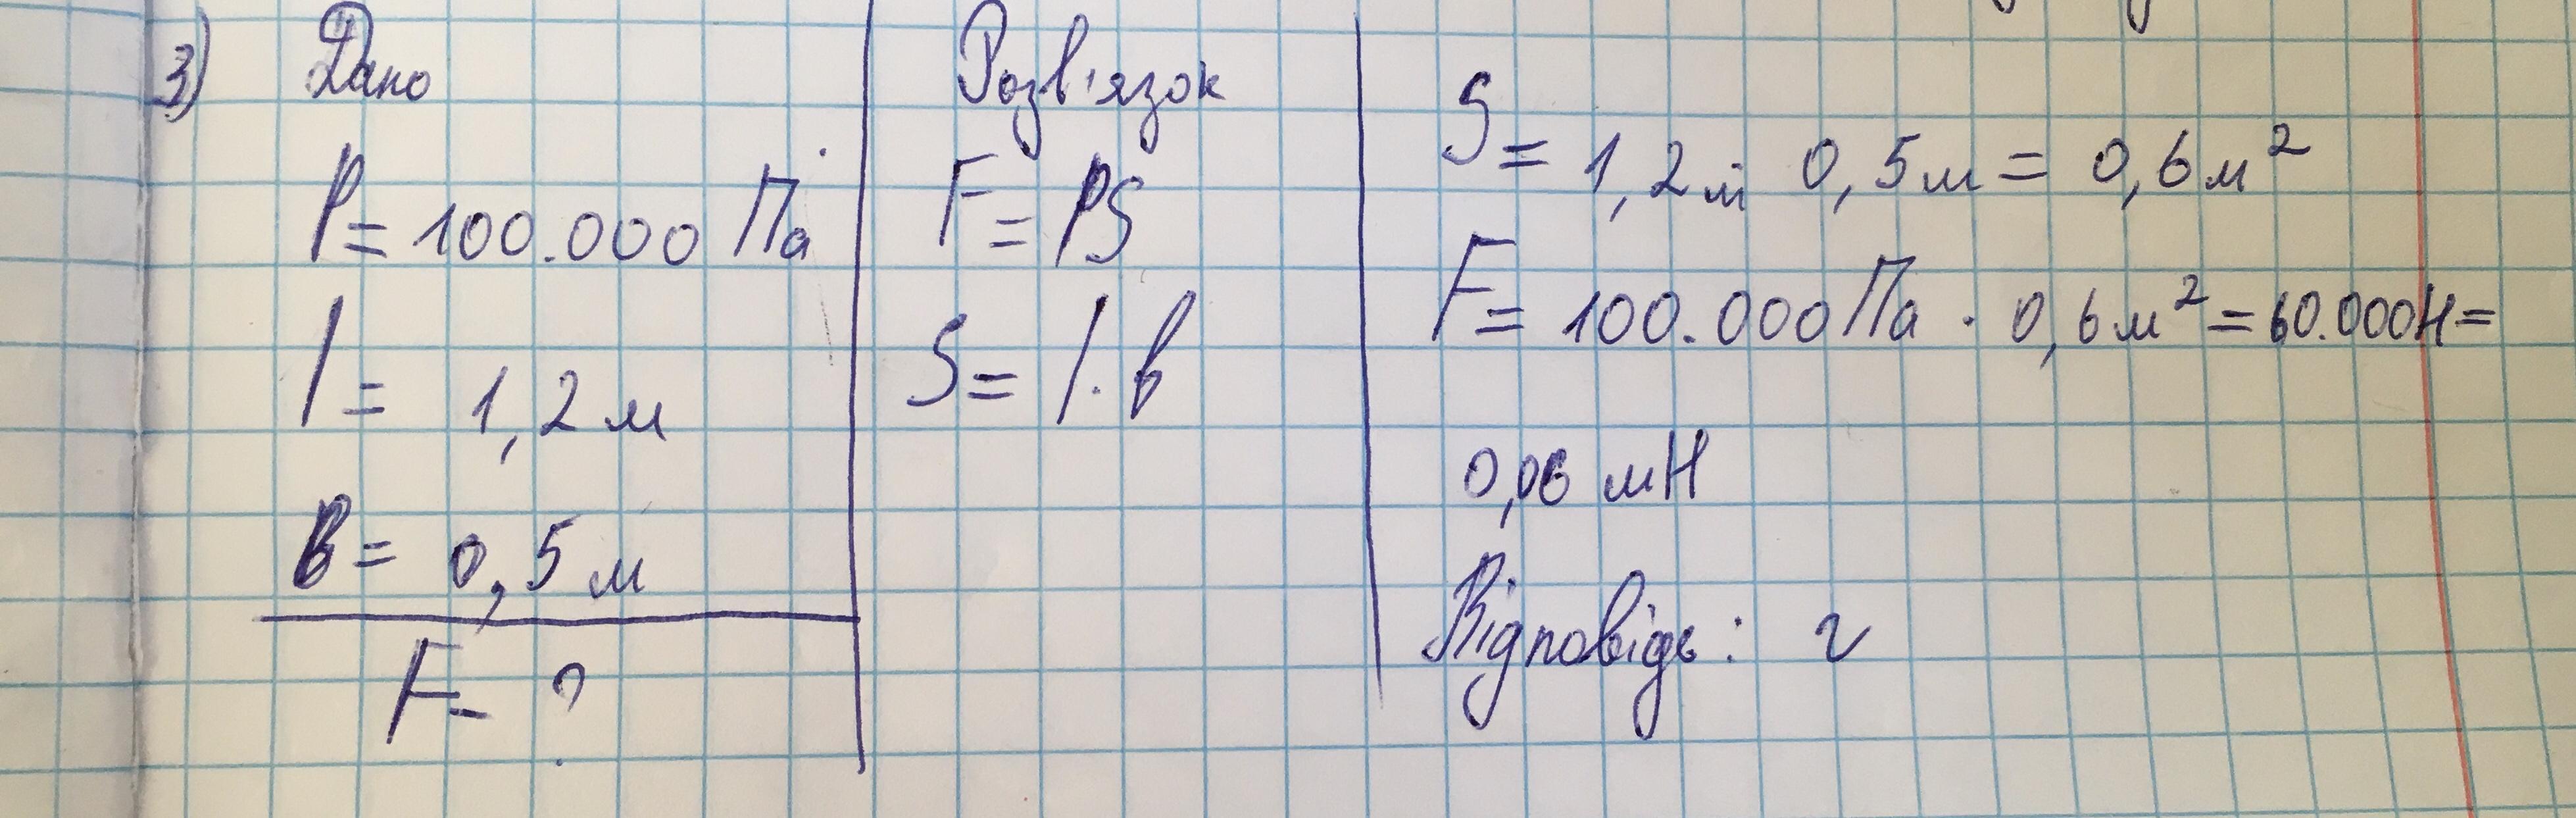 3) Дано
P = 100.000 Па
l = 1,2 м
в = 0,5 м
F = ?
Розв'язок
F = PS
S = l · в
S = 1,2 м · 0,5 м = 0,6 м²
F = 100.000 Па · 0,6 м² = 60.000 Н =
0,06 мН
Відповідь: г